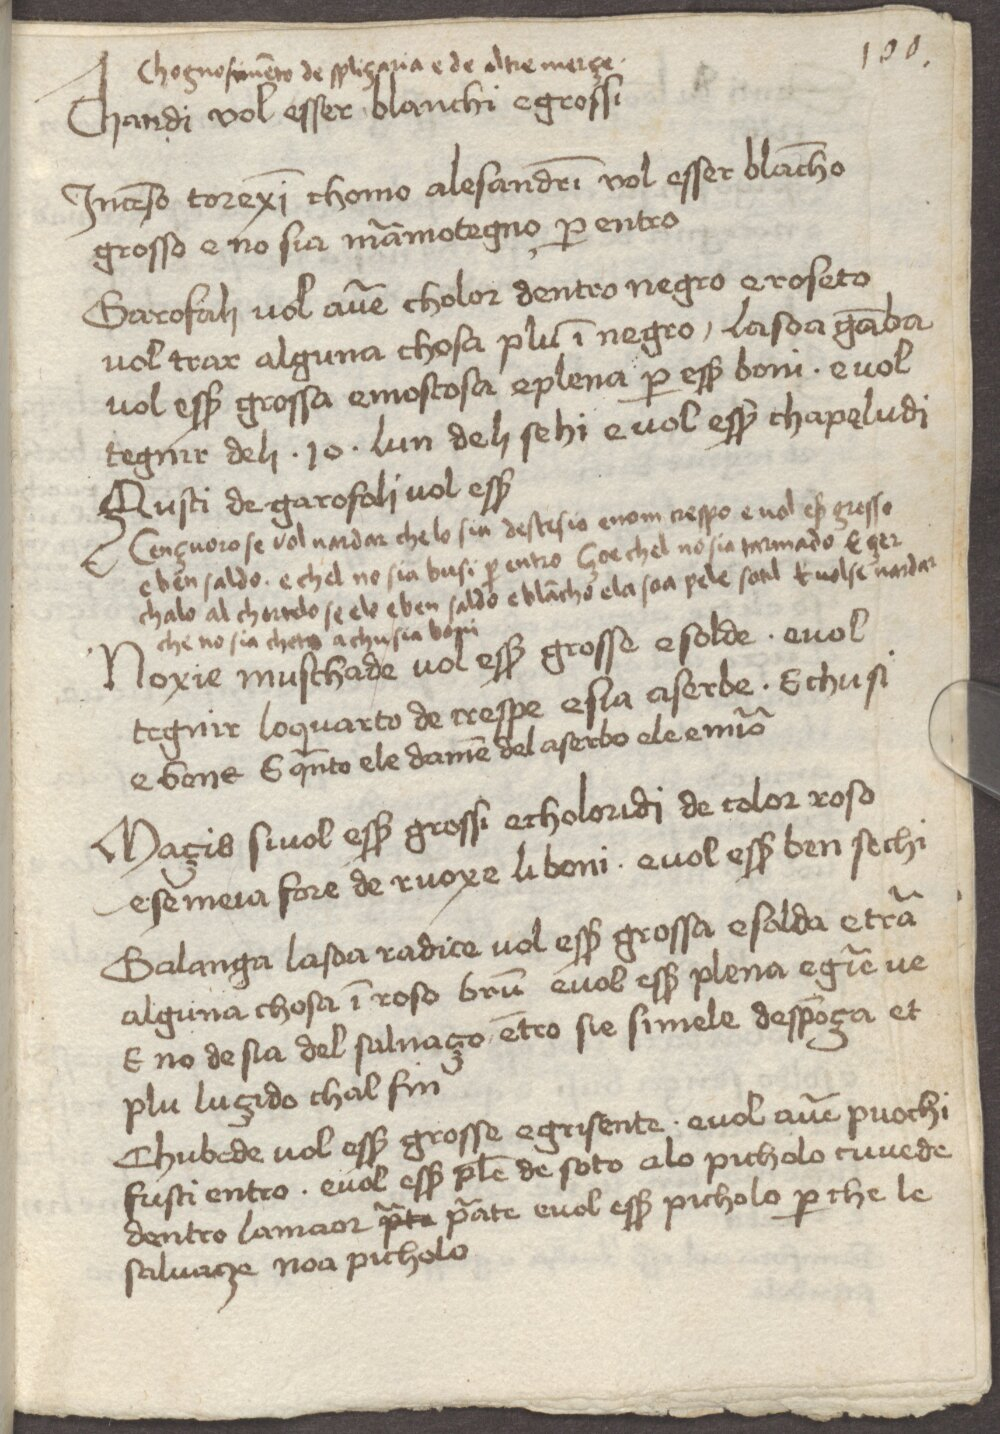 100.
Chognosimēto de spliçaria e de altre merçe.
Chandi vol esser blanchi e grossi
Incēso torexī chomo alesandrī vol esser blācho
grosso e no sia māmotegno per entro
Garofali vol auē cholor dentro negro e roseto
vol trar alguna chosa plu ī negro / la soa gāba
vol essr grossa e moscosa e plena per essr boni . e vol
tegnir deli . 10 . lun deli sehi e vol essr chapeludi
Fusti de garofoli vol essr
Cençuoro se vol vardar chelo sia destesio e nom crespo e vol essr grosso
e ben saldo . e chel no sia busi per entro Çoe chel no sia tarmado E çer
chalo al chortelo se elo e ben saldo e blācho ela soa pele sotil E vol se vardar
che no sia
Noxie muschade vol essr grosse e solde . e vol
tegnir lo quarto de crespe e sia aserbe . E chusi
e bone E q̄nto ele
Maçis si vol essr grossi e choloridi de color roso
e semeia fore de ruoxe li boni . e vol essr ben sechi
Galanga la soa radice vol essr grossa e solda e trā
alguna chosa ī roso brū e vol essr plena e
E no de sia del saluaço ētro sie simele despōga et
plu luçido chal fin
Chubede vol essr grosse e grisente . e vol auē puochi
fusti entro . e vol essr plē de soto alo picholo cuuede
dentro la maor p̄ate e vol essr picholo per che le
saluaçe noa picholo